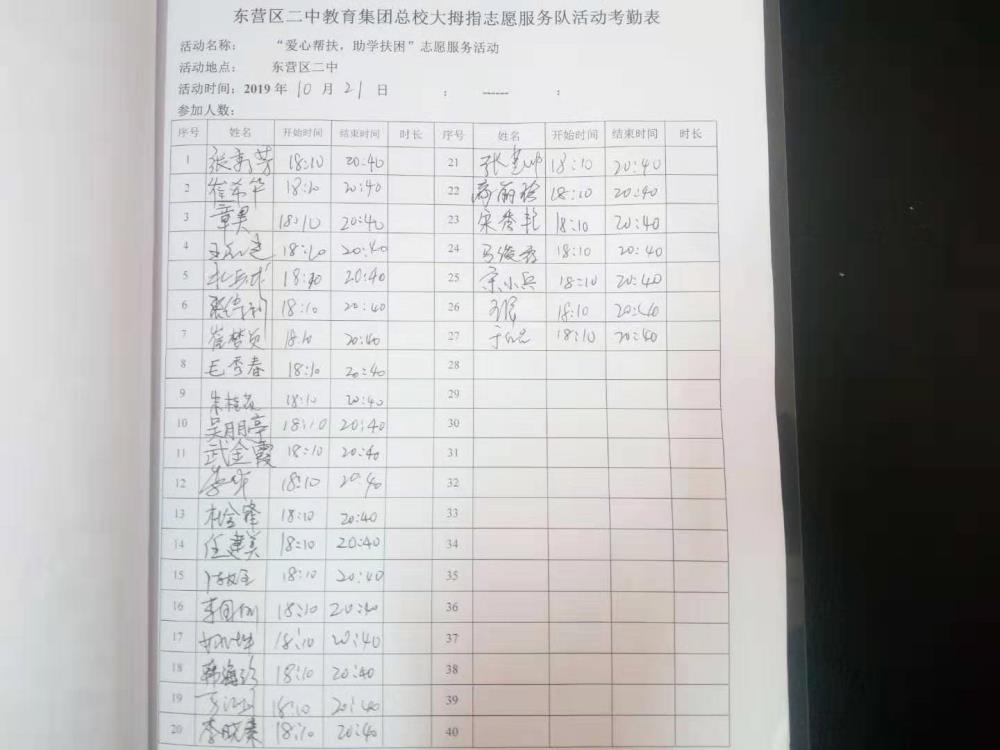 东营区二中教育集团总校大拇指志愿服务队活动考勤表
活动名称： “爱心帮扶，助学扶困”志愿服务活动
活动地点： 东营区二中
活动时间：2019 年 10 月 21 日 ： ------ ：
参加人数：
序号 姓名 开始时间 结束时间 时长 序号 姓名 开始时间 结束时间 时长
1 张秀芳 18:10 20:40 21 18:10 20:40
2 崔希华 18:10 20:40 22 18:10 20:40
3 章男 18:10 20:40 23 宋秀艳 18:10 20:40
4 18:10 20:40 24 马俊秀 18:10 20:40
5 18:10 20:40 25 宗小兵 18:10 20:40
6 18:10 20:40 26 18:10 20:40
7 崔梦贞 18:10 20:40 27 18:10 20:40
8 毛秀春 18:10 20:40 28
9 朱桂花 18:10 20:40 29
10 吴朋亭 18:10 20:40 30
11 武金霞 18:10 20:40 31
12 18:10 20:40 32
13 杜金锋 18:10 20:40 33
14 任建美 18:10 20:40 34
15 18:10 20:40 35
16 18:10 20:40 36
17 18:10 20:40 37
18 韩海珍 18:10 20:40 38
19 18:10 20:40 39
20 李晓燕 18:10 20:40 40